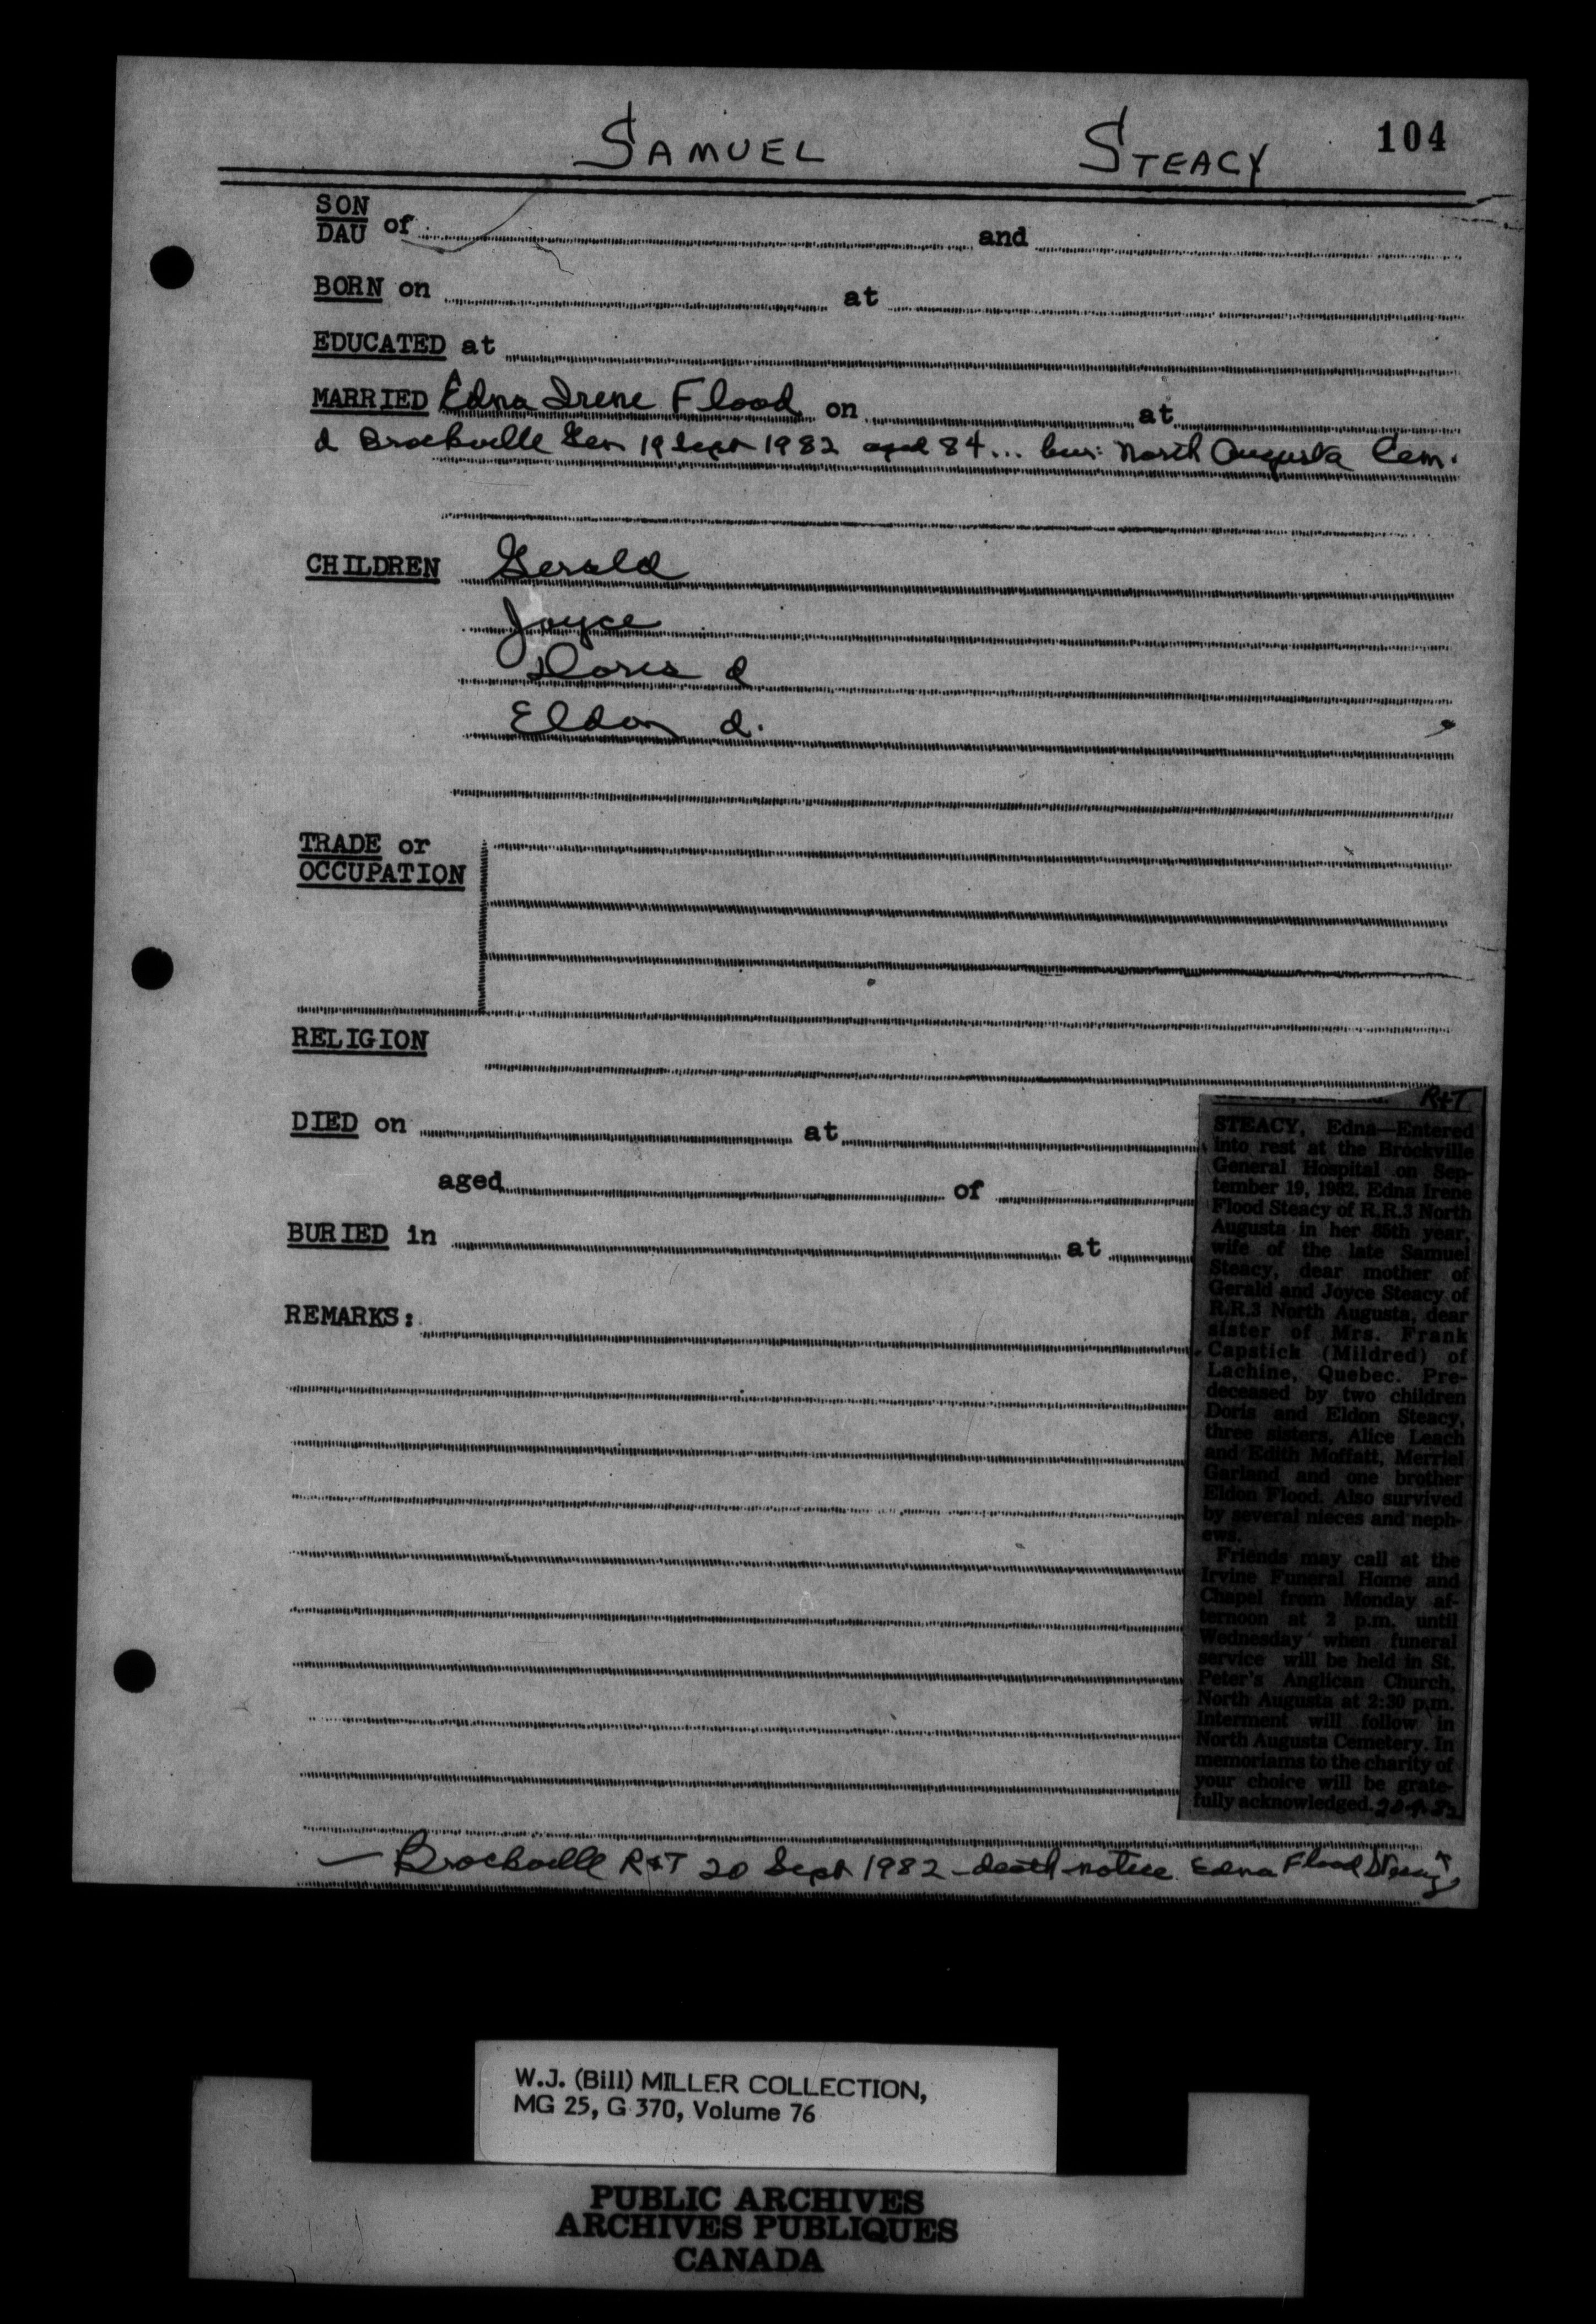 SAMUEL STEACY 104
SON
DAU of and
BORN on at
EDUCATED at
MARRIED Edna Irene Flood on at
d Brockville Gen 19 Sept 1982 aged 84... bur: North Augusta Cem.
CHILDREN Gerald
Joyce
Doris d
Eldon d.
TRADE or
OCCUPATION
RELIGION
DIED on at
aged of
BURIED in at
REMARKS:
R&T
STEACY, Edna—Entered
into rest at the Brockville
General Hospital on Sep-
tember 19, 1982, Edna Irene
Flood Steacy of R.R.3 North
Augusta in her 85th year,
wife of the late Samuel
Steacy, dear mother of
Gerald and Joyce Steacy of
R.R.3 North Augusta, dear
sister of Mrs. Frank
Capstick (Mildred) of
Lachine, Quebec. Pre-
deceased by two children
Doris and Eldon Steacy,
three sisters, Alice Leach
and Edith Moffatt, Merriel
Garland and one brother
Eldon Flood. Also survived
by several nieces and neph-
ews.
Friends may call at the
Irvine Funeral Home and
Chapel from Monday af-
ternoon at 2 p.m. until
Wednesday when funeral
service will be held in St.
Peter's Anglican Church,
North Augusta at 2:30 p.m.
Interment will follow in
North Augusta Cemetery. In
memoriams to the charity of
your choice will be grate-
fully acknowledged. 20-9-82
— Brockville R&T 20 Sept 1982 - death notice Edna Flood Steacy
W.J. (Bill) MILLER COLLECTION,
MG 25, G 370, Volume 76
PUBLIC ARCHIVES
ARCHIVES PUBLIQUES
CANADA